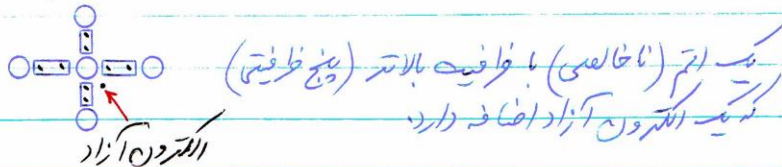 یک اتم (ناخالصی) با ظرفیت بالاتر (پنج ظرفیتی)
که یک الکترون آزاد اضافه دارد.
الکترون آزاد